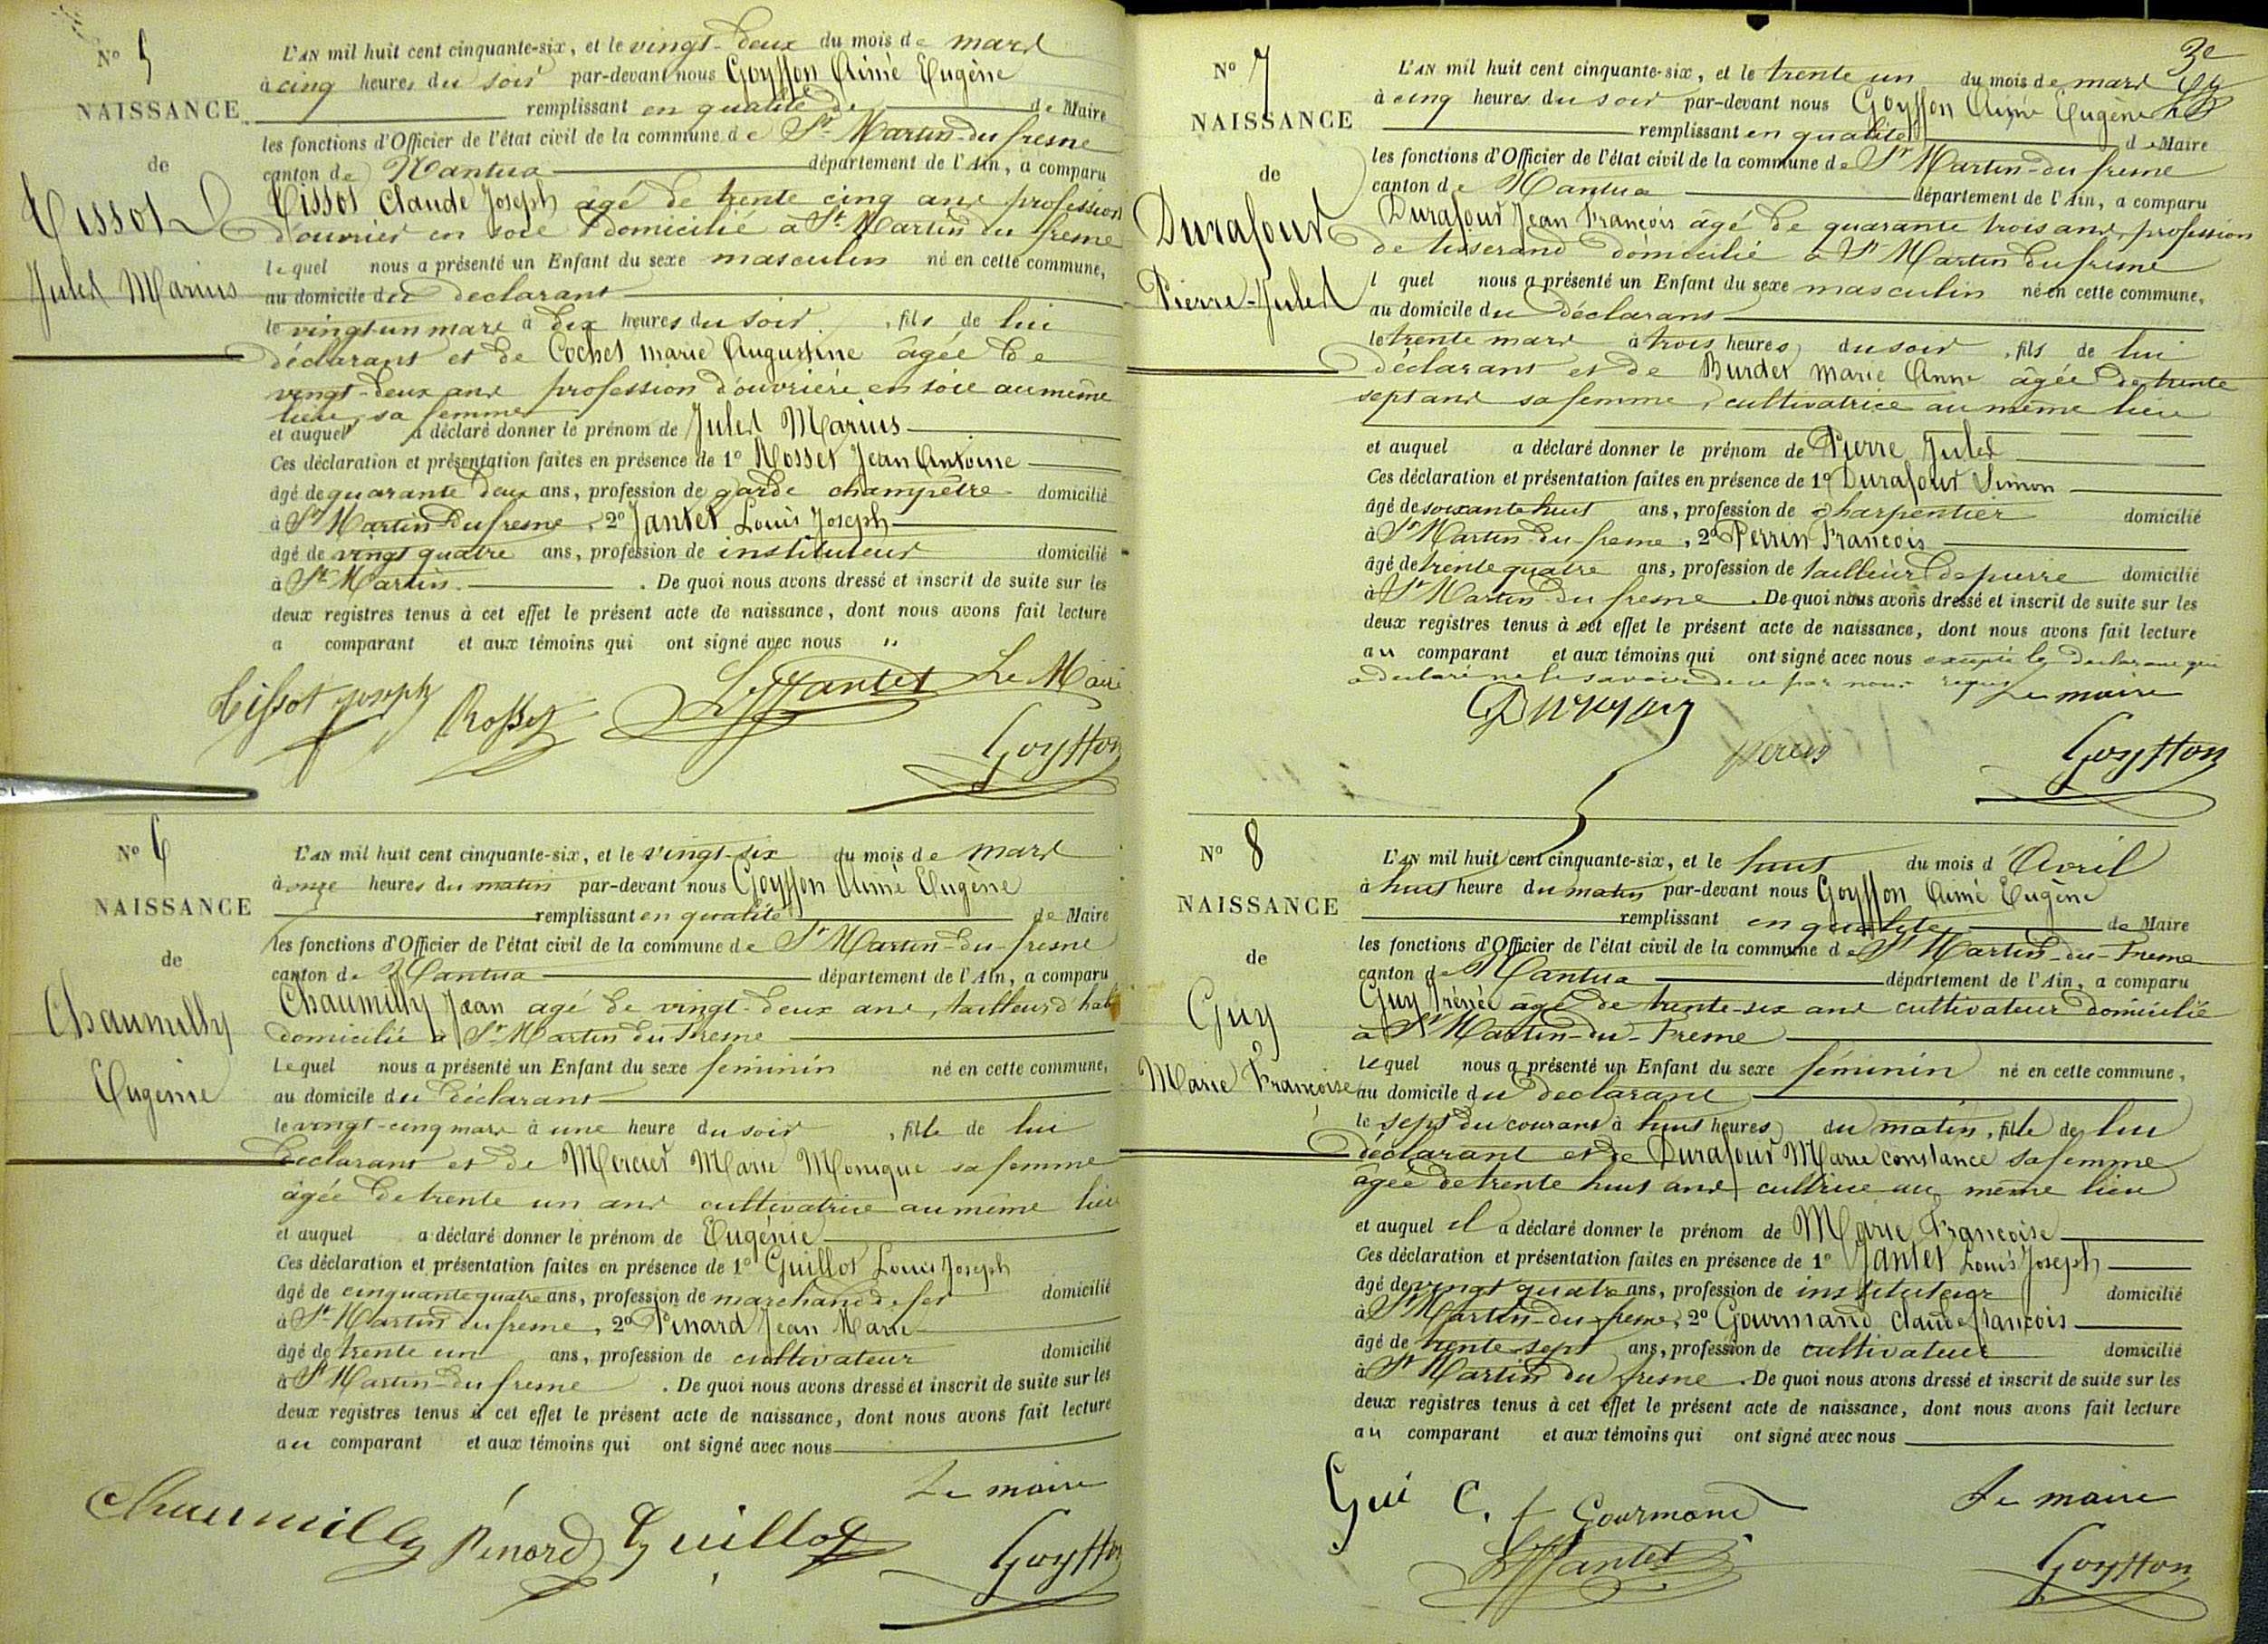 N° 5
NAISSANCE
de
Tissot
Jules Marius
L'AN mil huit cent cinquante-six, et le vingt-deux du mois de mars
à cinq heures du soir par-devant nous Goyffon Aimé Eugène
remplissant en qualité de de Maire
les fonctions d'Officier de l'état civil de la commune de St Martin-du fresne
canton de Nantua département de l'Ain, a comparu
Tissot Claude Joseph âgé de trente cinq ans profession
d'ouvrier en soie domicilié à St Martin du fresne
lequel nous a présenté un Enfant du sexe masculin né en cette commune,
au domicile du declarant
le vingt un mars à dix heures du soir, fils de lui
déclarant et de Cochet marie Augustine âgée de
vingt-deux ans profession d'ouvrière en soie au même
lieu, sa femme
et auquel a déclaré donner le prénom de Jules Marius
Ces déclaration et présentation faites en présence de 1° Rosset Jean Antoine
âgé de quarante deux ans, profession de garde champêtre domicilié
à St Martin du fresne, 2° Jantet Louis Joseph
âgé de vingt quatre ans, profession de instituteur domicilié
à St Martin. De quoi nous avons dressé et inscrit de suite sur les
deux registres tenus à cet effet le présent acte de naissance, dont nous avons fait lecture
a comparant et aux témoins qui ont signé avec nous "
Tissot joseph Rosset LJJantet Le Maire
Goyffon
N° 6
NAISSANCE
de
Chaumilly
Eugenie
L'AN mil huit cent cinquante-six, et le vingt-six du mois de mars
à onze heures du matin par-devant nous Goyffon Aimé Eugène
remplissant en qualité de Maire
les fonctions d'Officier de l'état civil de la commune de St Martin-du-fresne
canton de Nantua département de l'Ain, a comparu
Chaumilly Jean agé de vingt-deux ans, tailleur d'hab
domicilié à St Martin du Fresne
Lequel nous a présenté un Enfant du sexe feminin né en cette commune,
au domicile du déclarant
le vingt-cinq mars à une heure du soir, fille de lui
déclarant et de Mercier Marie Monique sa femme
âgée de trente un ans cultivatrice au même lieu
et auquel a déclaré donner le prénom de Eugénie
Ces déclaration et présentation faites en présence de 1° Guillot Louis Joseph
âgé de cinquante quatre ans, profession de marchand de fer domicilié
à St Martin du fresne, 2° Pinard Jean Marie
âgé de trente un ans, profession de cultivateur domicilié
à St Martin-du fresne. De quoi nous avons dressé et inscrit de suite sur les
deux registres tenus à cet effet le présent acte de naissance, dont nous avons fait lecture
au comparant et aux témoins qui ont signé avec nous
Le maire
Chaumilly Pinard Guillot Goyffon
N° 7
NAISSANCE
de
Durafour
Pierre-Jules
L'AN mil huit cent cinquante-six, et le trente un du mois de mars
à cinq heures du soir par-devant nous Goyffon Aimé Eugène
remplissant en qualité de Maire
les fonctions d'Officier de l'état civil de la commune de St Martin-du fresne
canton de Nantua département de l'Ain, a comparu
Durafour Jean François âgé de quarante trois ans, profession
de tisserand domicilié à St Martin du fresne
l quel nous a présenté un Enfant du sexe masculin né en cette commune,
au domicile du déclarant
le trente mars à trois heures du soir, fils de lui
déclarant et de Burdet marie Anne âgée de trente
sept ans sa femme, cultivatrice au même lieu
et auquel a déclaré donner le prénom de Pierre Jules
Ces déclaration et présentation faites en présence de 1° Durafour Simon
âgé de soixante huit ans, profession de charpentier domicilié
à St Martin-du-fresne, 2° Perrin François
âgé de trente quatre ans, profession de tailleur de pierre domicilié
à St Martin-du fresne. De quoi nous avons dressé et inscrit de suite sur les
deux registres tenus à cet effet le présent acte de naissance, dont nous avons fait lecture
au comparant et aux témoins qui ont signé avec nous excepté le declarant qui
a declaré ne le savoir de ce par nous requis Le maire
Goyffon
N° 8
NAISSANCE
de
Guy
Marie Françoise
L'AN mil huit cent cinquante-six, et le huit du mois d'Avril
à huit heure du matin par-devant nous Goyffon Aimé Eugène
remplissant en qualite de Maire
les fonctions d'Officier de l'état civil de la commune de St Martin-du-Fresne
canton de Nantua département de l'Ain, a comparu
Guy âgé de trente-six ans cultivateur domicilié
à St Martin-du-Fresne
Lequel nous a présenté un Enfant du sexe féminin né en cette commune,
au domicile du declarant
le sept du courant à huit heures du matin, fille de lui
déclarant et de Durafour Marie constance sa femme
âgée de trente huit ans cultrice au même lieu
et auquel il a déclaré donner le prénom de Marie Françoise
Ces déclaration et présentation faites en présence de 1° Jantet Louis Joseph
âgé de vingt quatre ans, profession de instituteur domicilié
à St Martin-du-fresne, 2° Gourmand claude françois
âgé de trente sept ans, profession de cultivateur domicilié
à St Martin du fresne. De quoi nous avons dressé et inscrit de suite sur les
deux registres tenus à cet effet le présent acte de naissance, dont nous avons fait lecture
au comparant et aux témoins qui ont signé avec nous
Gui C. f Gourmand Le maire
LJJantet Goyffon